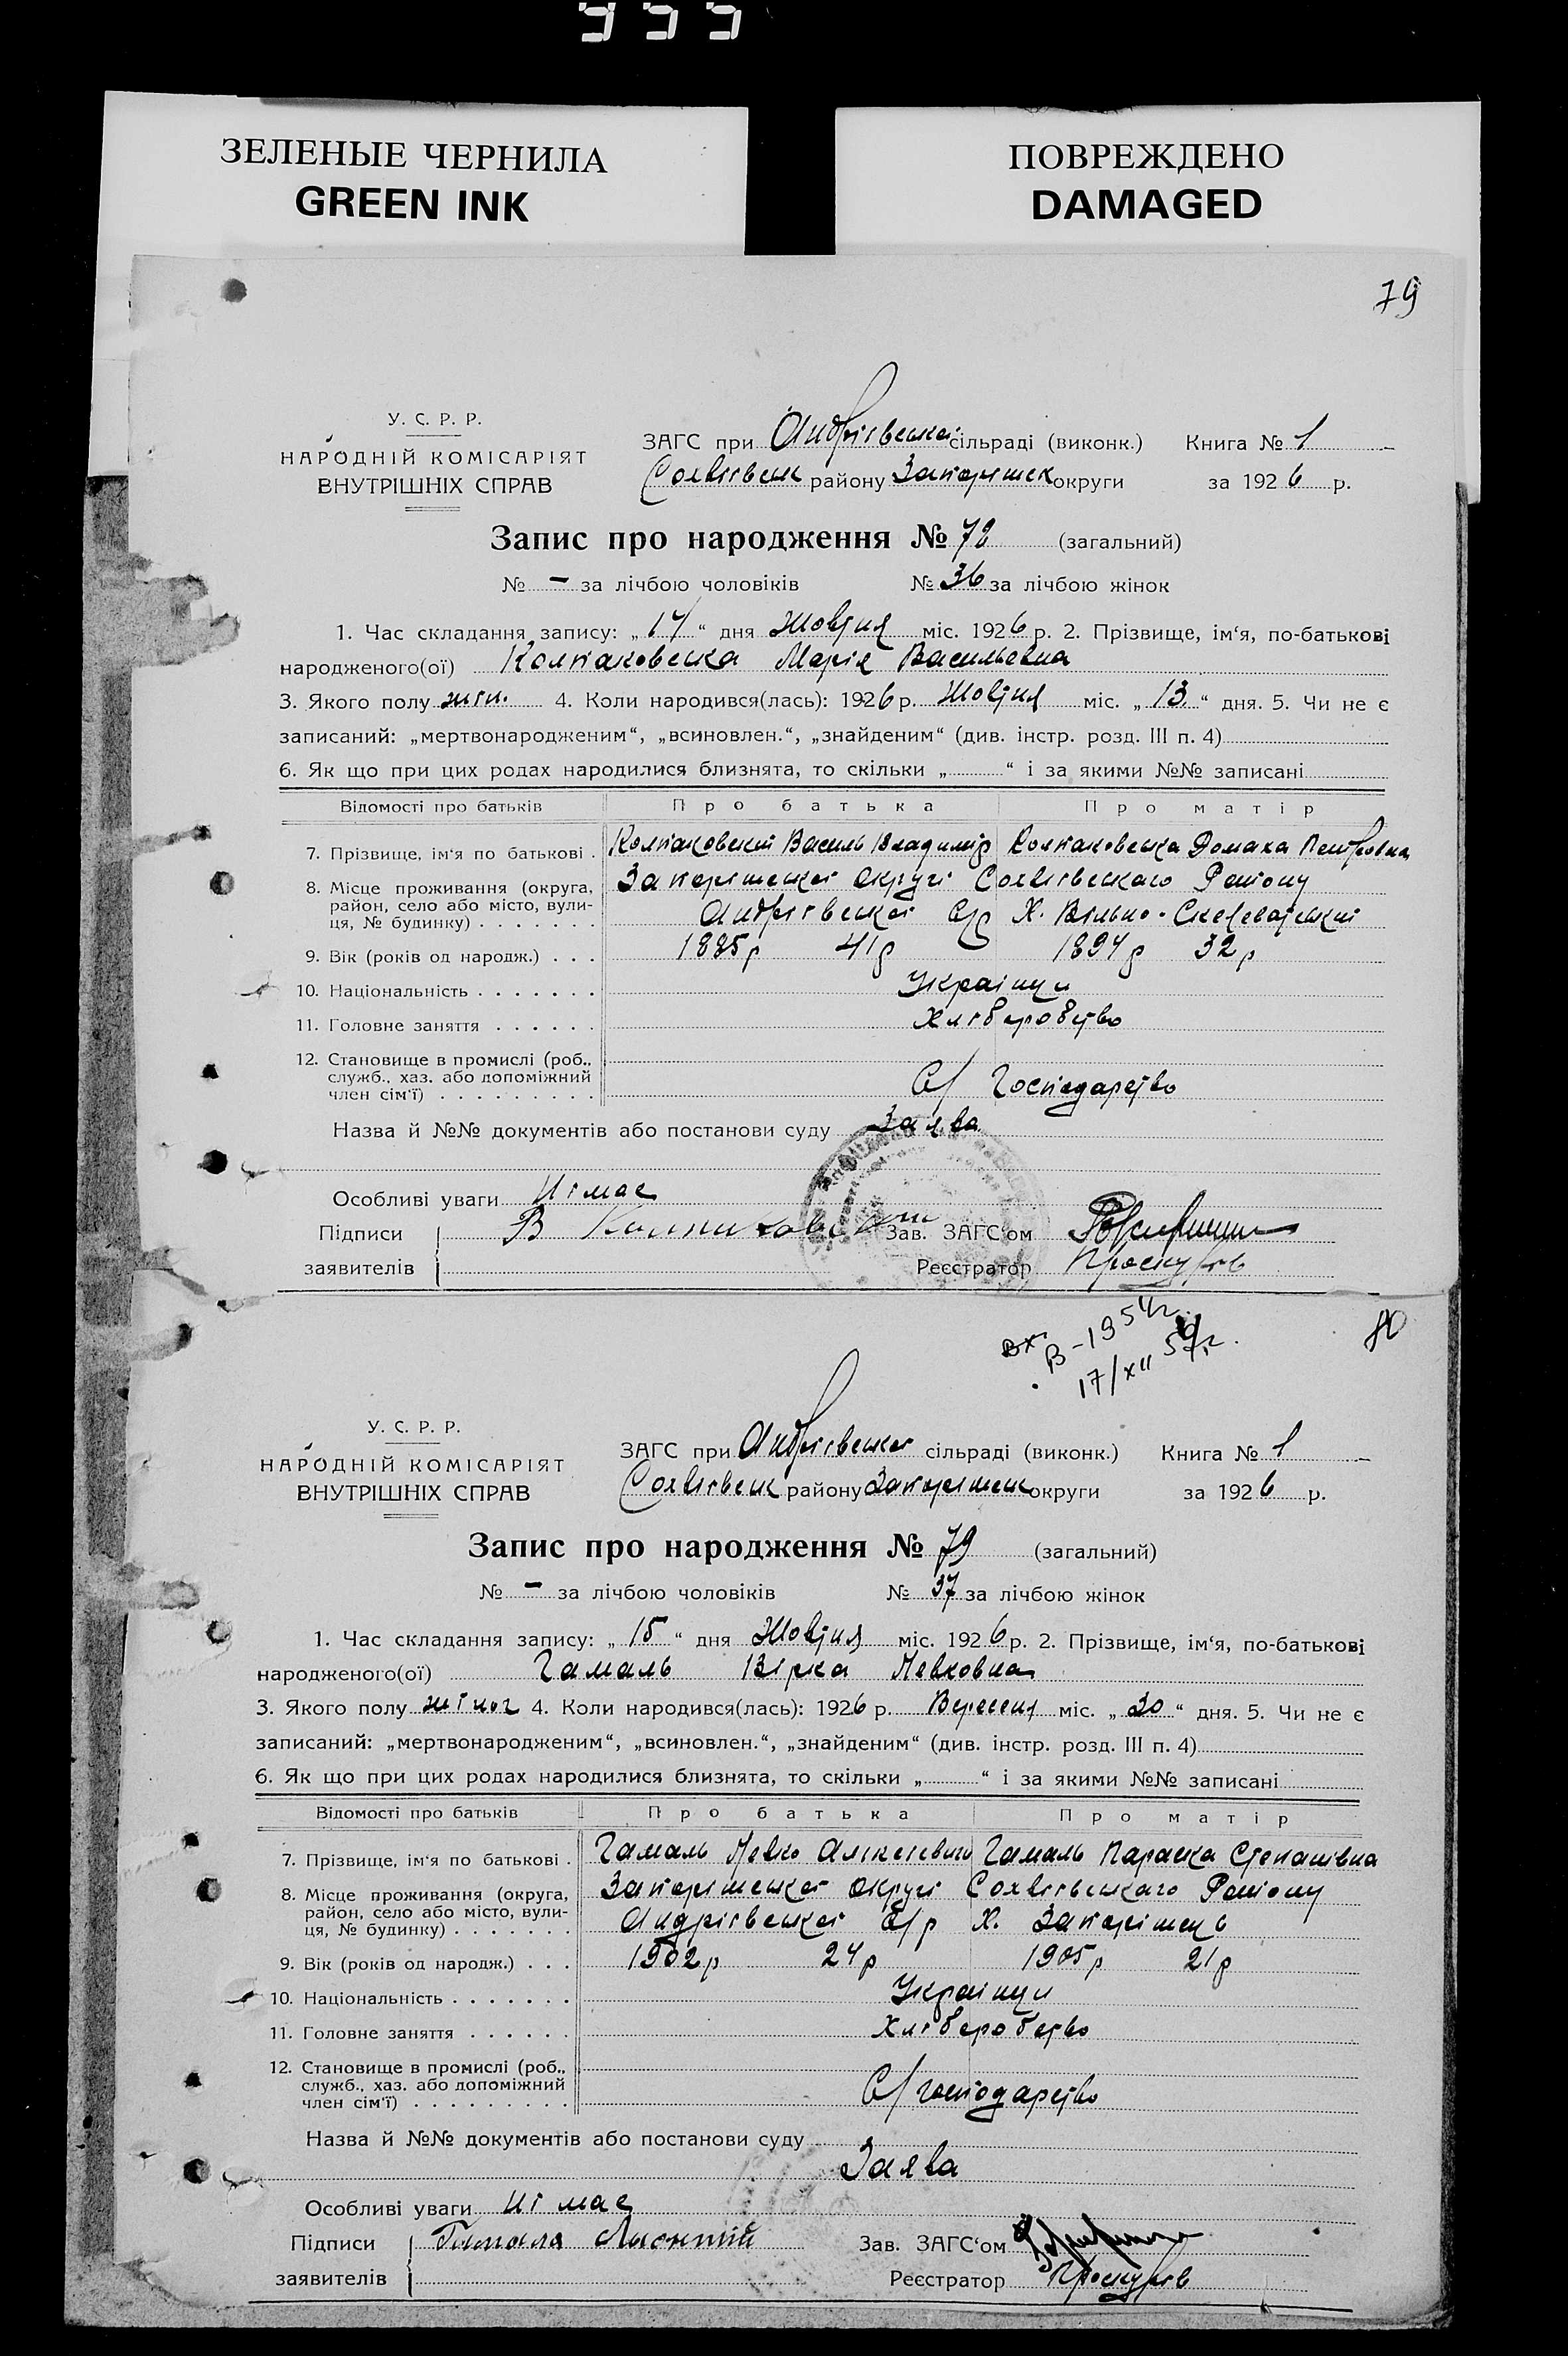 955
ЗЕЛЕНЫЕ ЧЕРНИЛА
GREEN INK
ПОВРЕЖДЕНО
DAMAGED
79
У. С. Р. Р.
НАРОДНІЙ КОМІСАРІЯТ
ВНУТРІШНІХ СПРАВ
ЗАГС при Андріівської сільраді (виконк.) Книга № 1
Софіівськ району Запоріжськ округи за 1926 р.
Запис про народження № 78 (загальний)
№ – за лічбою чоловіків № 36 за лічбою жінок
1. Час складання запису: „14“ дня Жовтня міс. 1926 р. 2. Прізвище, ім‘я, по-батькові
народженого(ої) Колпаковська Марія Васильевна
3. Якого полу жін. 4. Коли народився(лась): 1926 р. Жовтня міс. „13“ дня. 5. Чи не є
записаний: „мертвонародженим“, „всиновлен.“, „знайденим“ (див. інстр. розд. III п. 4)
6. Як що при цих родах народилися близнята, то скільки „ “ і за якими №№ записані
Відомості про батьків Про батька Про матір
7. Прізвище, ім‘я по батькові . Колпаковський Василь Владимір Колпаковська Домаха Петровна
8. Місце проживання (округа, Запоріжської округи Софіівського Району
район, село або місто, вули- Андріівської с/р Х. Вільно-
ця, № будинку)
9. Вік (років од народж.) 1885р 41р 1894р 32р
10. Національність Українці
11. Головне заняття Хліборобство
12. Становище в промислі (роб.,
служб., хаз. або допоміжний С/ Господарство
член сім‘ї)
Назва й №№ документів або постанови суду Заява
Особливі уваги Німає
Підписи В Колпаковський Зав. ЗАГС‘ом
заявителів Реєстратор Проскурів
вх. В-1954г.
17/XII 54г.
80
У. С. Р. Р.
НАРОДНІЙ КОМІСАРІЯТ
ВНУТРІШНІХ СПРАВ
ЗАГС при Андріівської сільраді (виконк.) Книга № 1
Софіівськ району Запоріжськ округи за 1926 р.
Запис про народження № 79 (загальний)
№ – за лічбою чоловіків № 37 за лічбою жінок
1. Час складання запису: „15“ дня Жовтня міс. 1926 р. 2. Прізвище, ім‘я, по-батькові
народженого(ої) Гамаль Вірка Левковна
3. Якого полу жіноч 4. Коли народився(лась): 1926 р. Вересня міс. „30“ дня. 5. Чи не є
записаний: „мертвонародженим“, „всиновлен.“, „знайденим“ (див. інстр. розд. III п. 4)
6. Як що при цих родах народилися близнята, то скільки „ “ і за якими №№ записані
Відомості про батьків Про батька Про матір
7. Прізвище, ім‘я по батькові . Гамаль Левко Алексієвич Гамаль Параска Степанівна
8. Місце проживання (округа, Запоріжської округи Софіівського Району
район, село або місто, вули- Андріівської с/р Х. Запоріжець
ця, № будинку)
9. Вік (років од народж.) 1902р 24р 1905р 21р
10. Національність Українці
11. Головне заняття Хліборобство
12. Становище в промислі (роб.,
служб., хаз. або допоміжний С/господарство
член сім‘ї)
Назва й №№ документів або постанови суду
Заява
Особливі уваги Ні має
Підписи Гамаля Зав. ЗАГС‘ом
заявителів Реєстратор Проскурів